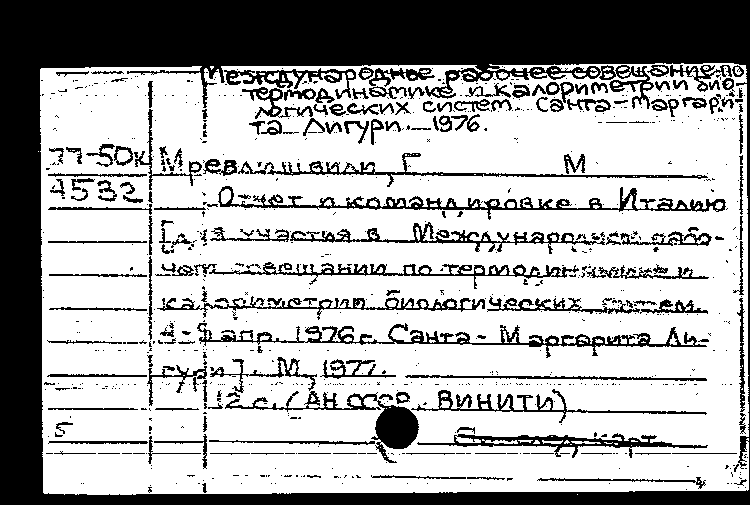 Международное рабочее совещание по
термодинамике и калориметрии био-
логических систем. Санта-Маргари-
та Лигури. 1976.
77-50к Мревлишвили, Г М
4532 Отчет о командировке в Италию
[для участия в Международном рабо-
чем совещании по термодинамике и
калориметрии биологических систем.
4-9 апр. 1976 г. Санта-Маргарита Ли-
гури]. М., 1977.
12 с. (АН СССР. ВИНИТИ)
5 См. след. карт.